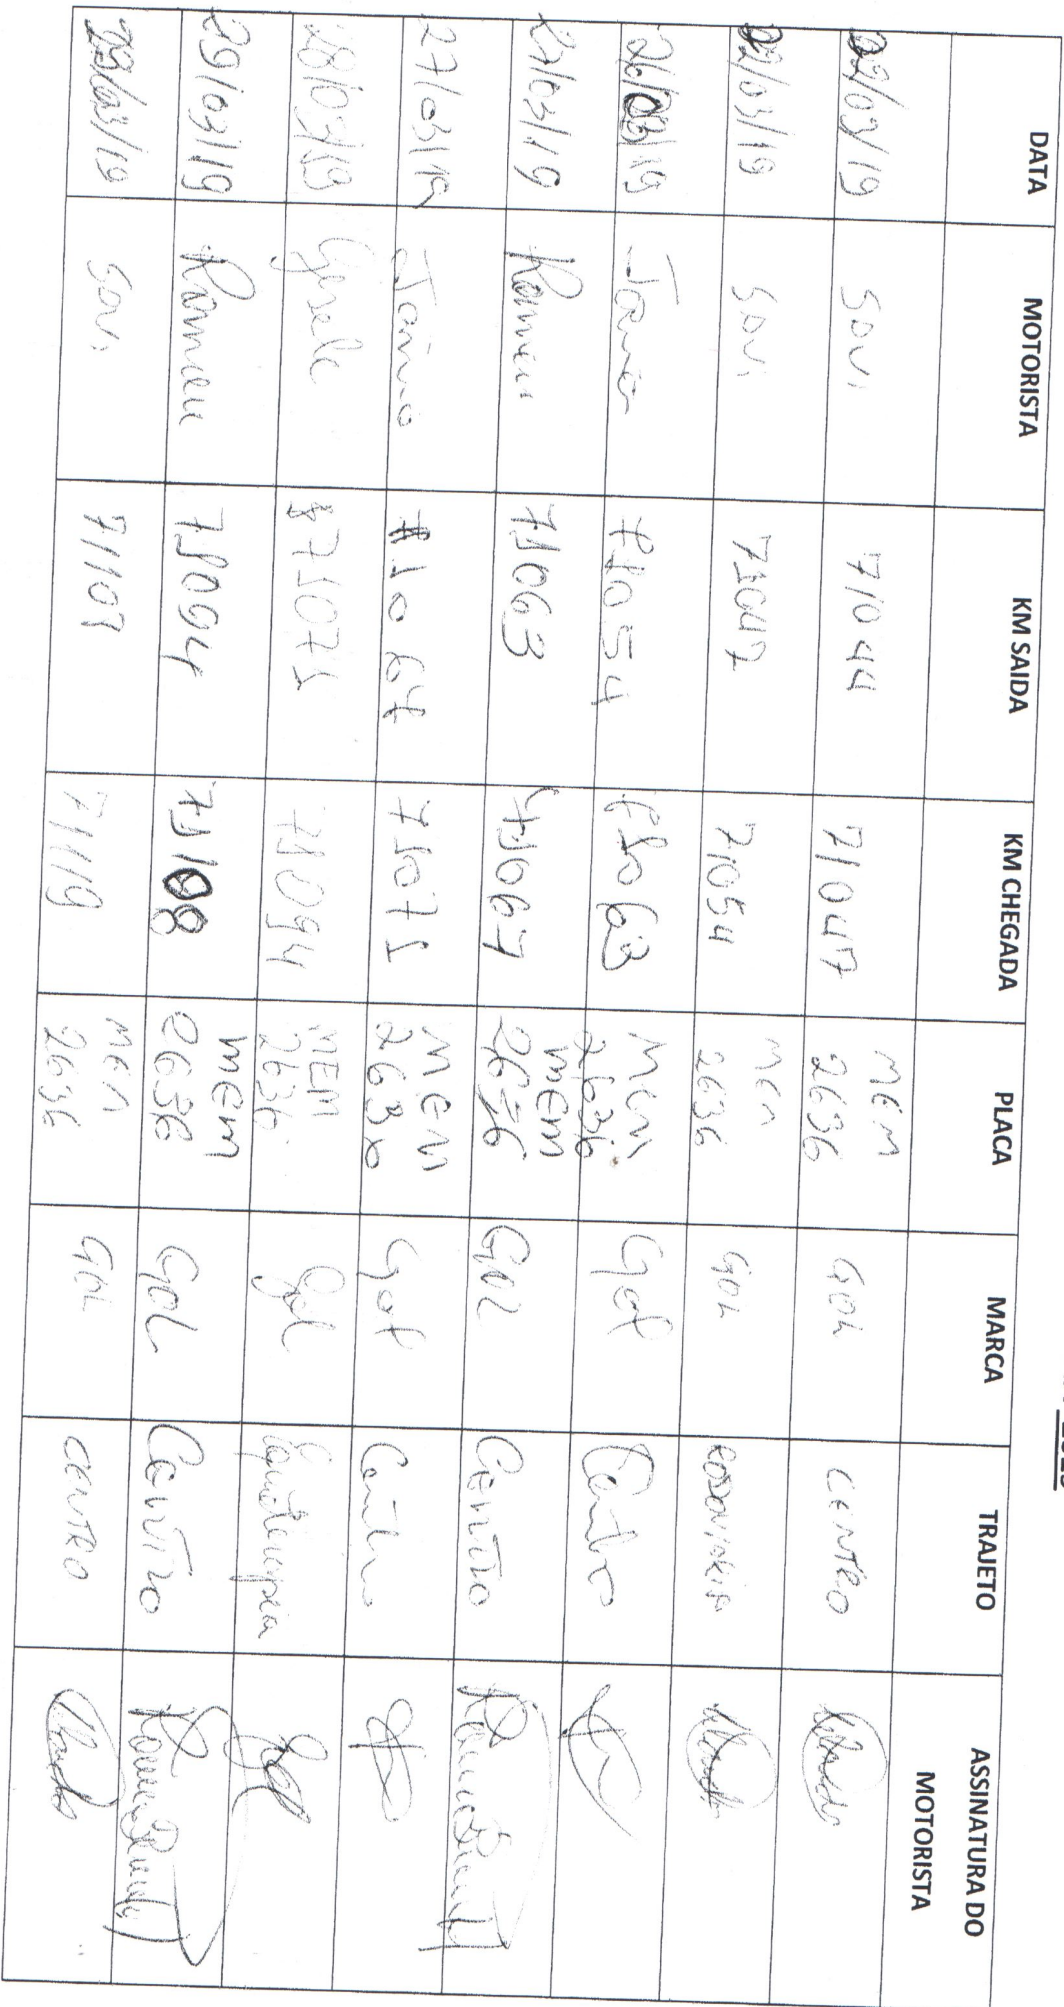 DATA MOTORISTA KM SAIDA KM CHEGADA PLACA MARCA TRAJETO ASSINATURA DO MOTORISTA
22/03/19 SOVI 71044 71047 MEM 2636 GOL CENTRO
22/03/19 SOVI 71047 71054 MEM 2636 GOL RODOVIARIA
26/03/19 71054 71063 MEM 2636 Gol Centro
27/03/19 71063 71067 MEM 2636 GOL CENTRO
27/03/19 71067 71071 MEM 2636 Gol Centro
28/03/19 Gisele 71071 71094 MEM 2636 Gol Equoterapia
29/03/19 71094 71108 MEM 2636 GOL CENTRO
29/03/19 SOVI 71108 71119 MEM 2636 GOL CENTRO